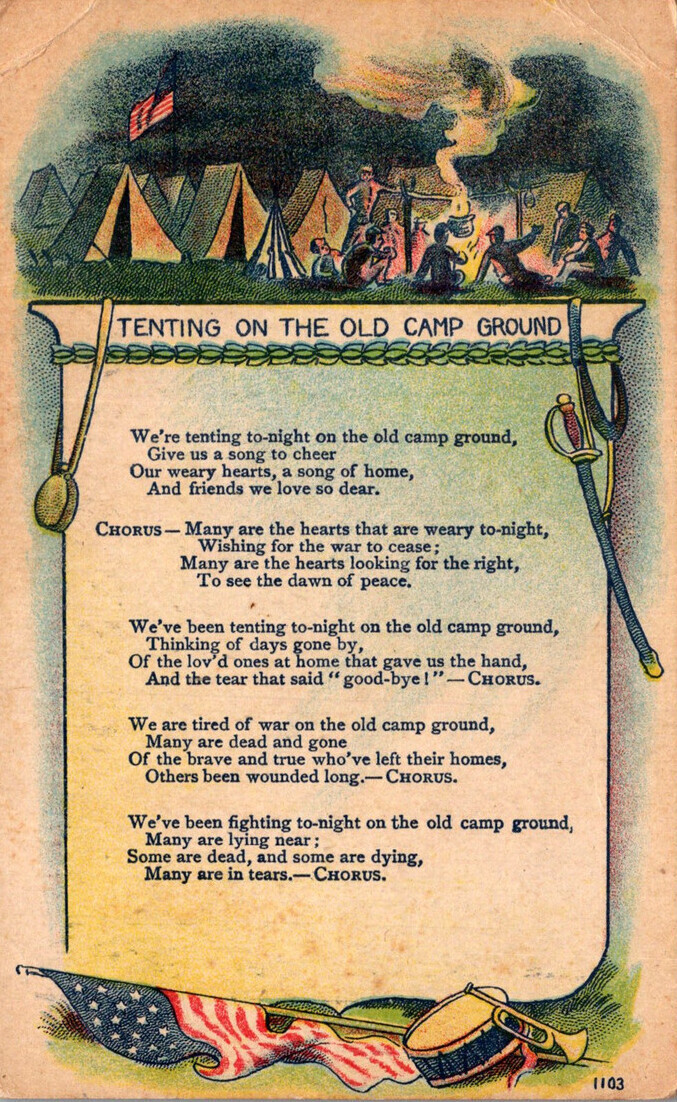 TENTING ON THE OLD CAMP GROUND
We're tenting to-night on the old camp ground,
Give us a song to cheer
Our weary hearts, a song of home,
And friends we love so dear.
CHORUS — Many are the hearts that are weary to-night,
Wishing for the war to cease;
Many are the hearts looking for the right,
To see the dawn of peace.
We've been tenting to-night on the old camp ground,
Thinking of days gone by,
Of the lov'd ones at home that gave us the hand,
And the tear that said "good-bye!" — CHORUS.
We are tired of war on the old camp ground,
Many are dead and gone
Of the brave and true who've left their homes,
Others been wounded long.— CHORUS.
We've been fighting to-night on the old camp ground,
Many are lying near;
Some are dead, and some are dying,
Many are in tears.— CHORUS.
1103